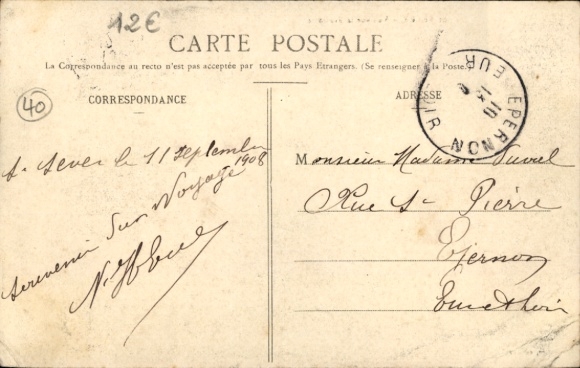 12€
CARTE POSTALE
La Correspondance au recto n'est pas acceptée par tous les Pays Etrangers. (Se renseigner à la Poste.)
40
CORRESPONDANCE
St Sever le 11 Septembre
1908
Souvenir Sur Voyage
ADRESSE
EPERNON
EURE
OIR
10
Monsieur Madame
Rue St Pierre
Epernon
Eure et Loir